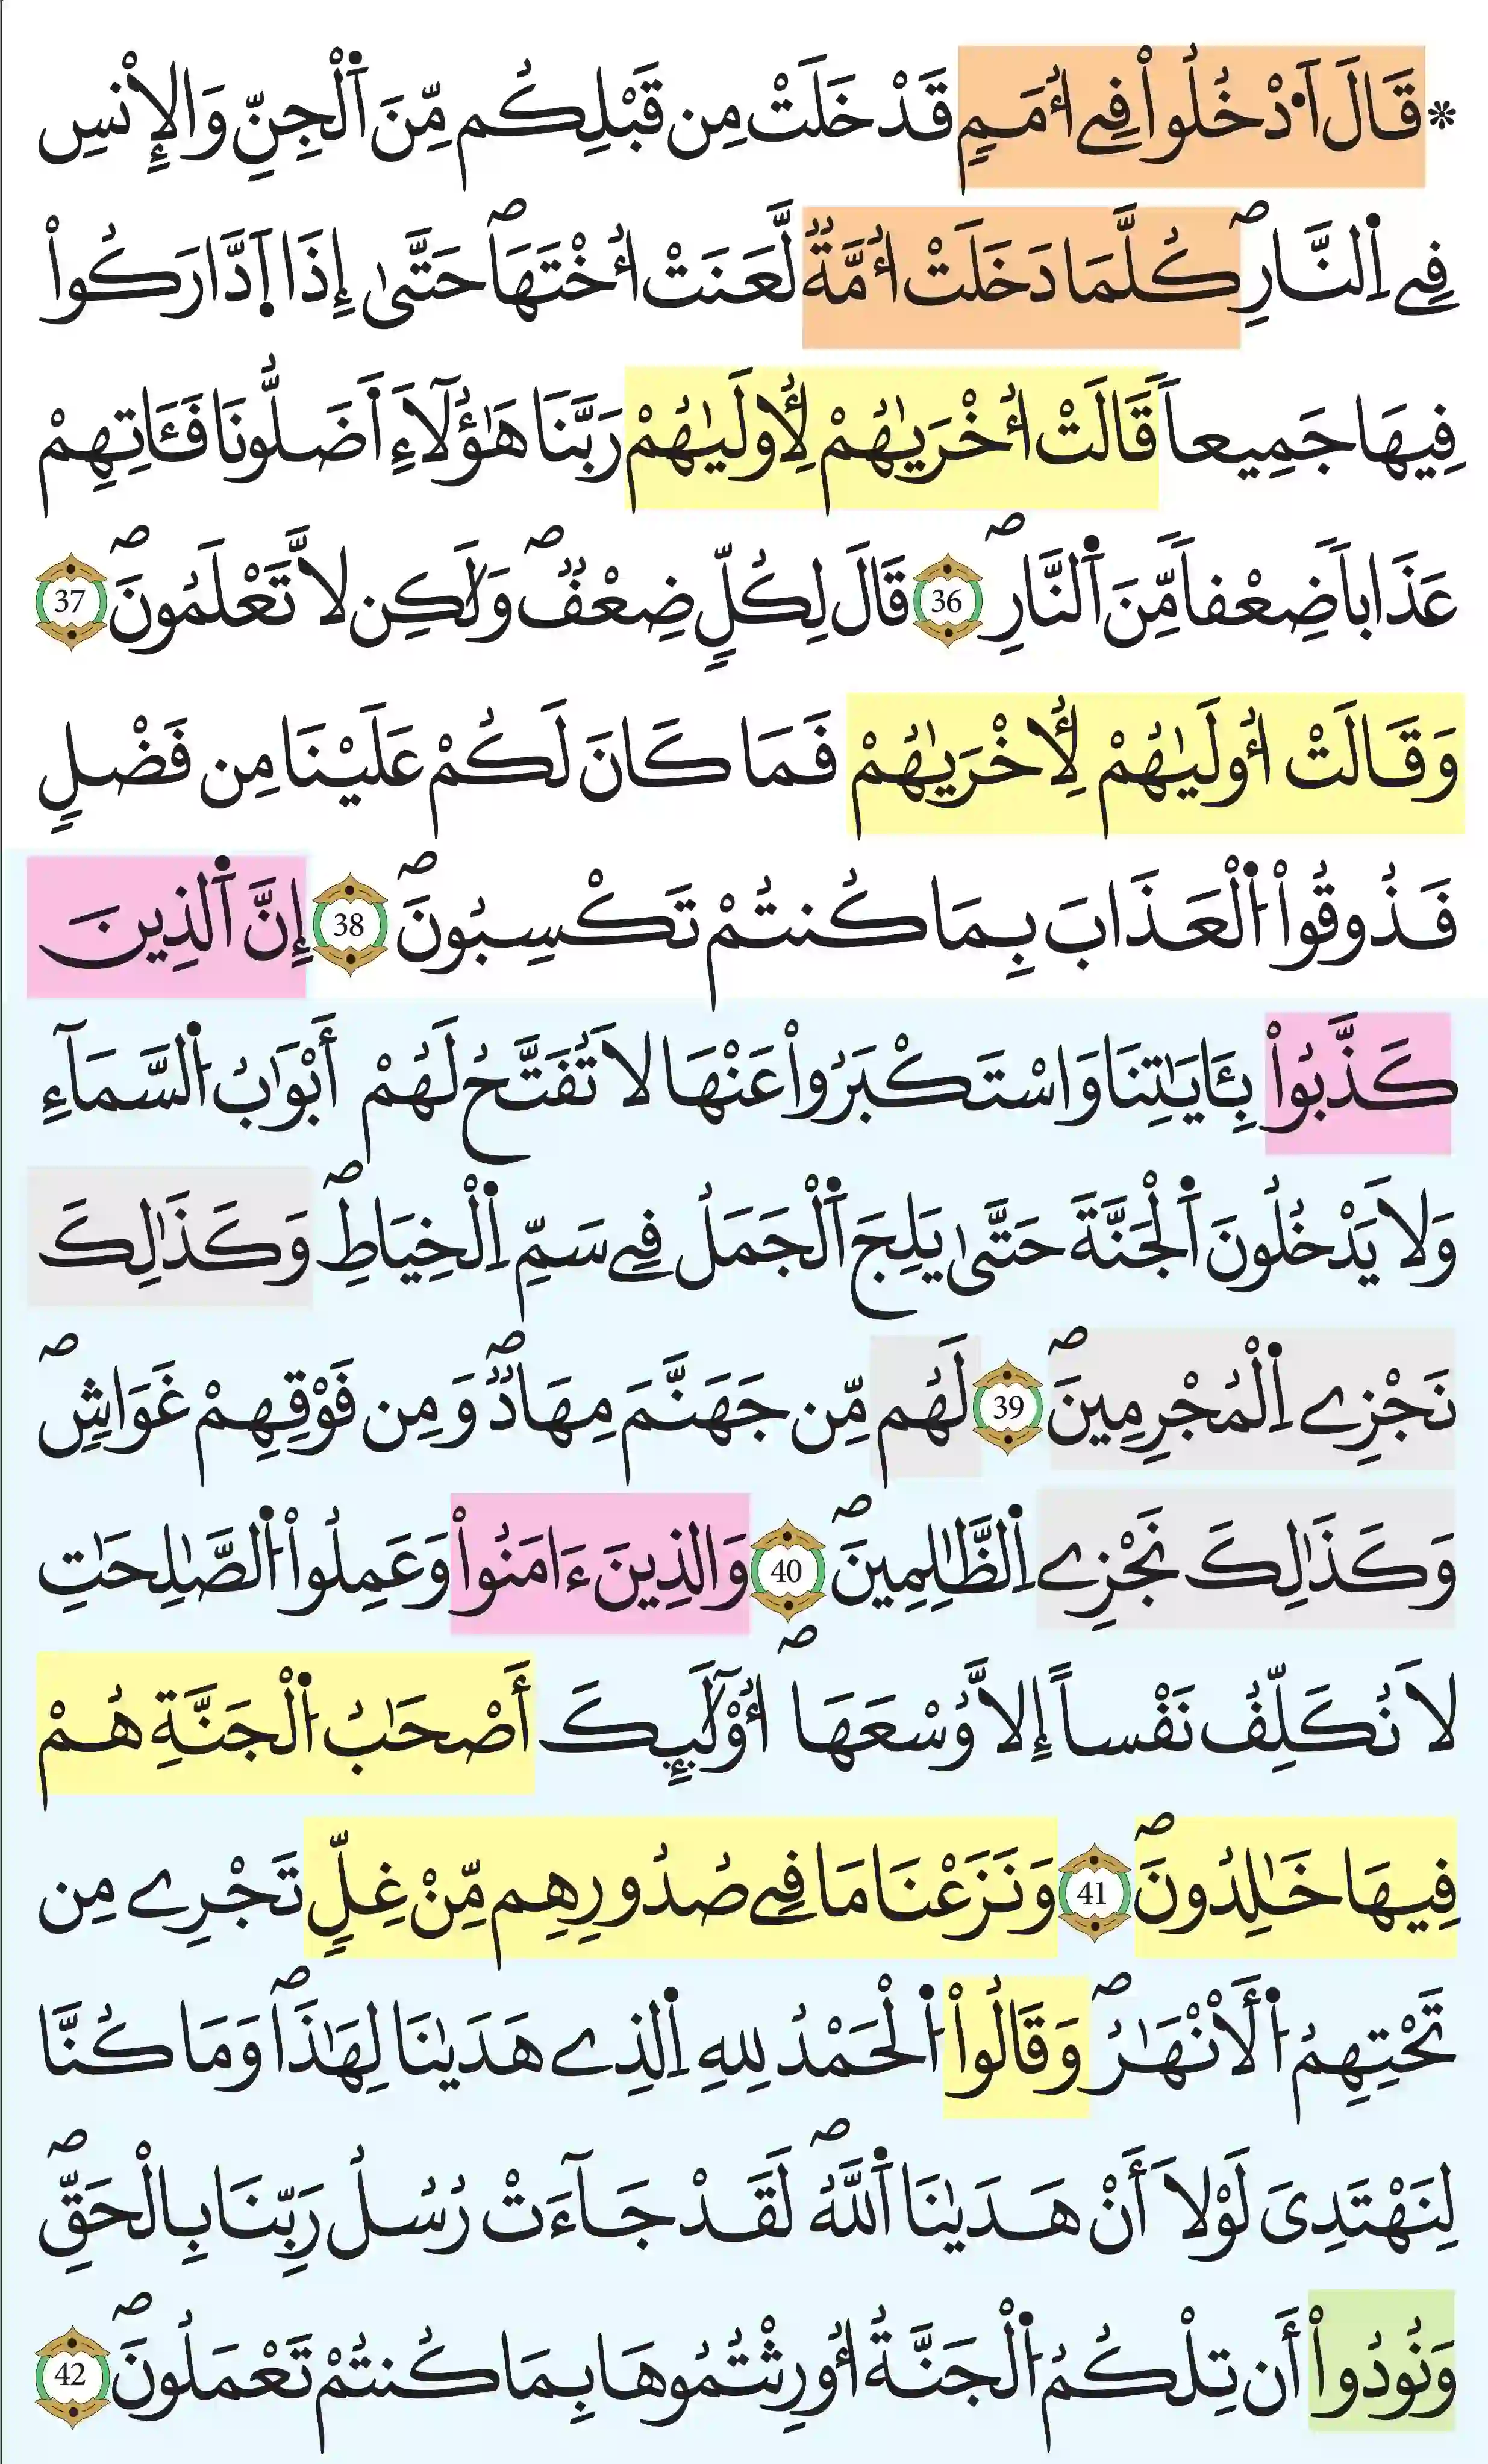 * قَالَ اَ۟دْخُلُواْ فِےٓ أُمَمٖ قَدْ خَلَتْ مِن قَبْلِكُم مِّنَ اَ۬لْجِنِّ وَالِانسِ
فِے اِ۬لنّ۪ارِۖ كُلَّمَا دَخَلَتُ امَّةٞ لَّعَنَتُ اخْتَهَاۖ حَتَّىٰٓ إِذَا اَ۪دَّارَكُواْ
فِيهَا جَمِيعاٗ قَالَتُ اخْر۪يٰهُمْ لِأُول۪يٰهُمْ رَبَّنَا هَٰٓؤُلَآءِ اَ۬ضَلُّونَا فَـَٔاتِهِمْ
عَذَاباٗ ضِعْفاٗ مِّنَ اَ۬لنّ۪ارِۖ 36 قَالَ لِكُلّٖ ضِعْفٞۖ وَلَٰكِن لَّا تَعْلَمُونَۖ 37
وَقَالَتُ اول۪يٰهُمْ لِأُخْر۪يٰهُمْ فَمَا كَانَ لَكُمْ عَلَيْنَا مِن فَضْلٖ
فَذُوقُواْ اُ۬لْعَذَابَ بِمَا كُنتُمْ تَكْسِبُونَۖ 38 إِنَّ اَ۬لذِينَ
كَذَّبُواْ بِـَٔايَٰتِنَا وَاسْتَكْبَرُواْ عَنْهَا لَا تُفَتَّحُ لَهُمُۥٓ أَبْوَٰبُ اُ۬لسَّمَآءِ
وَلَا يَدْخُلُونَ اَ۬لْجَنَّةَ حَتَّىٰ يَلِجَ اَ۬لْجَمَلُ فِے سَمِّ اِ۬لْخِيَاطِۖ وَكَذَٰلِكَ
نَجْزِے اِ۬لْمُجْرِمِينَۖ 39 لَهُم مِّن جَهَنَّمَ مِهَادٞۖ وَمِن فَوْقِهِمْ غَوَاشٖۖ
وَكَذَٰلِكَ نَجْزِے اِ۬لظَّٰلِمِينَۖ 40 وَالذِينَ ءَامَنُواْ وَعَمِلُواْ اُ۬لصَّٰلِحَٰتِ
لَا نُكَلِّفُ نَفْساً اِلَّا وُسْعَهَآۖ أُوْلَٰٓئِكَ أَصْحَٰبُ اُ۬لْجَنَّةِ هُمْ
فِيهَا خَٰلِدُونَۖ 41 وَنَزَعْنَا مَا فِے صُدُورِهِم مِّنْ غِلّٖ تَجْرِے مِن
تَحْتِهِمُ اُ۬لَانْهَٰرُۖ وَقَالُواْ اُ۬لْحَمْدُ لِلهِ اِ۬لذِے هَد۪يٰنَا لِهَٰذَاۖ وَمَا كُنَّا
لِنَهْتَدِيَ لَوْلَآ أَنْ هَد۪يٰنَا اَ۬للَّهُۖ لَقَدْ جَآءَتْ رُسُلُ رَبِّنَا بِالْحَقِّۖ
وَنُودُوٓاْ أَن تِلْكُمُ اُ۬لْجَنَّةُ أُورِثْتُمُوهَا بِمَا كُنتُمْ تَعْمَلُونَۖ 42